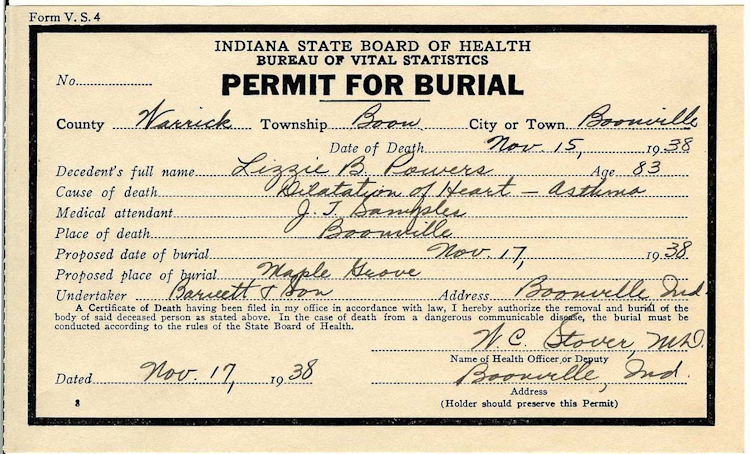 Form V. S. 4
INDIANA STATE BOARD OF HEALTH
BUREAU OF VITAL STATISTICS
No.
PERMIT FOR BURIAL
County Warrick Township Boon City or Town Boonville
Date of Death Nov. 15, 1938
Decedent's full name Lizzie B. Powers Age 83
Cause of death Dilatation of Heart - Asthma
Medical attendant J. T. Samples
Place of death Boonville
Proposed date of burial Nov. 17, 1938
Proposed place of burial Maple Grove
Undertaker Barnett & Son Address Boonville, Ind.
A Certificate of Death having been filed in my office in accordance with law, I hereby authorize the removal and burial of the
body of said deceased person as stated above. In the case of death from a dangerous communicable disease, the burial must be
conducted according to the rules of the State Board of Health.
W. C. Stover, M.D.
Name of Health Officer or Deputy
Dated Nov. 17, 1938 Boonville, Ind.
Address
8 (Holder should preserve this Permit)